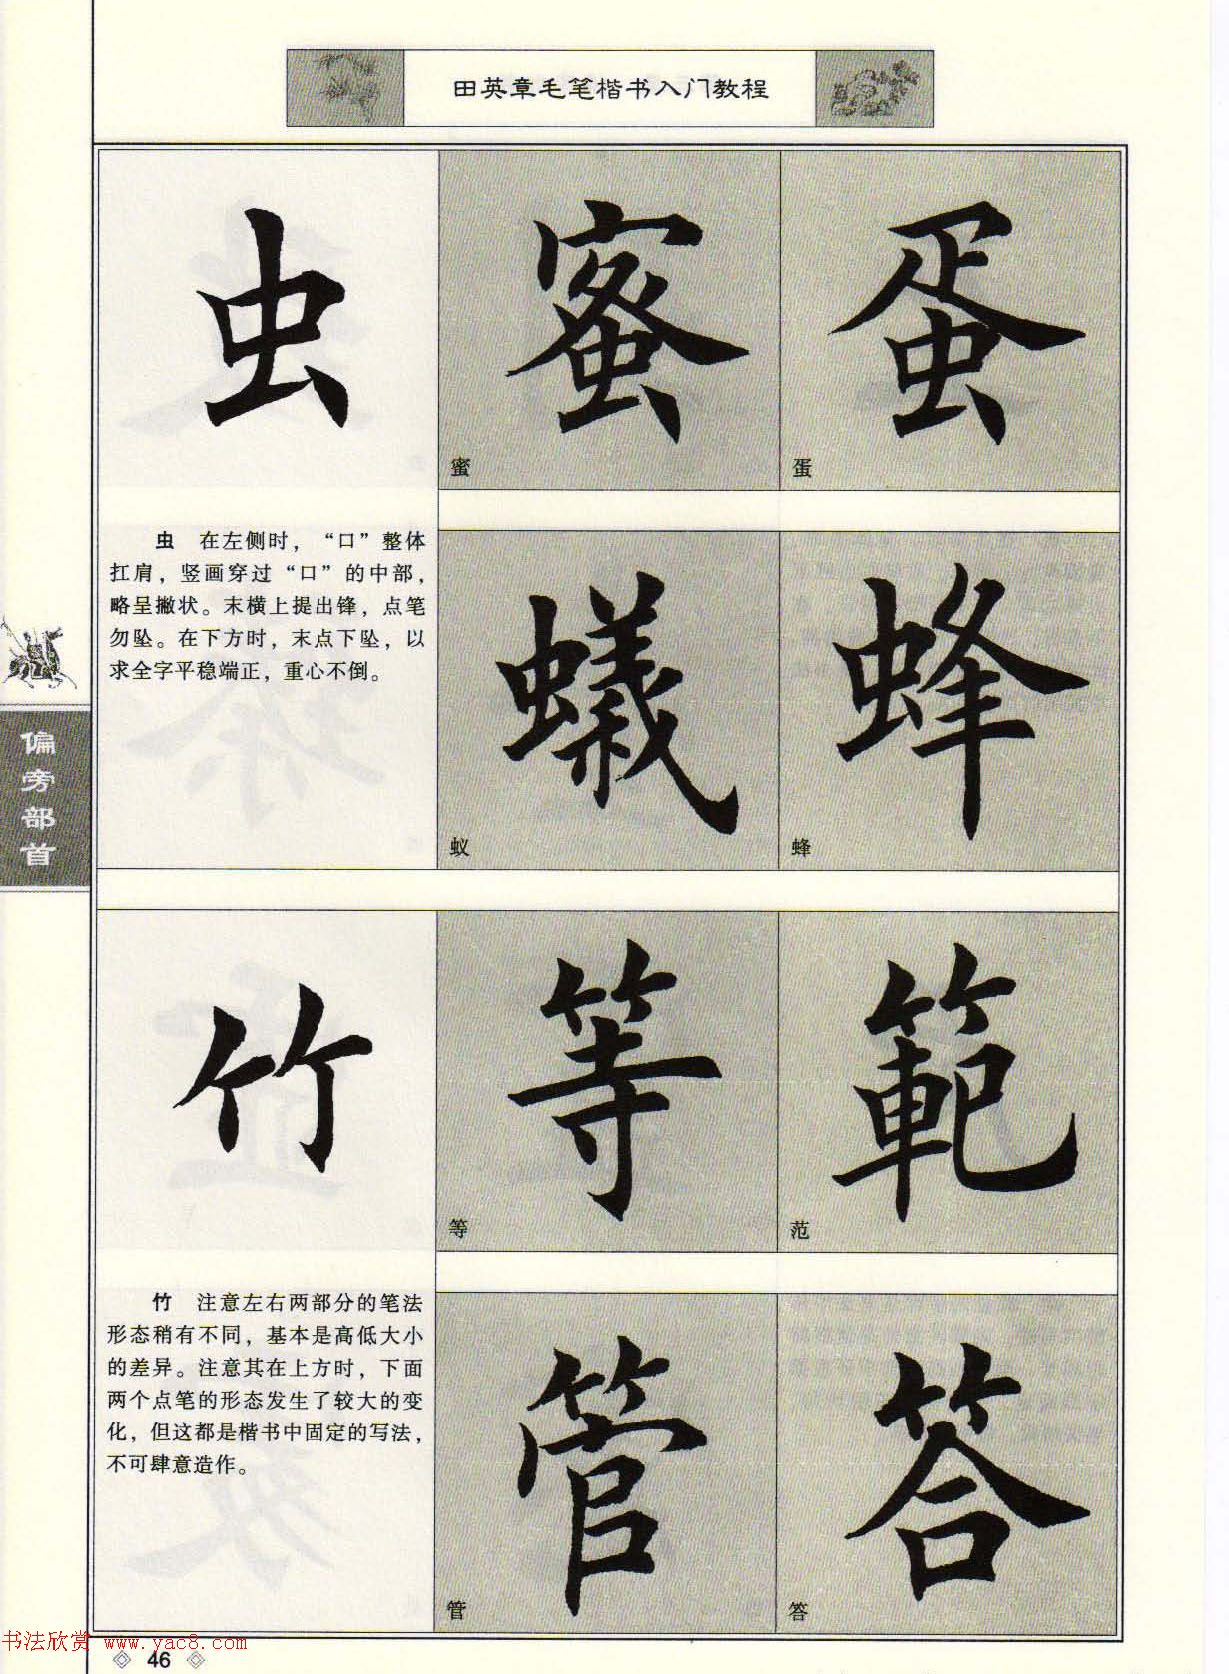 田英章毛笔楷书入门教程
虫
蜜
蜜
蛋
蛋
虫 在左侧时，“口”整体
扛肩，竖画穿过“口”的中部，
略呈撇状。末横上提出锋，点笔
勿坠。在下方时，末点下坠，以
求全字平稳端正，重心不倒。
蟻
蚁
蜂
蜂
偏旁部首
竹
等
等
範
范
竹 注意左右两部分的笔法
形态稍有不同，基本是高低大小
的差异。注意其在上方时，下面
两个点笔的形态发生了较大的变
化，但这都是楷书中固定的写法，
不可肆意造作。
管
管
答
答
书法欣赏 www.yac8.com
46